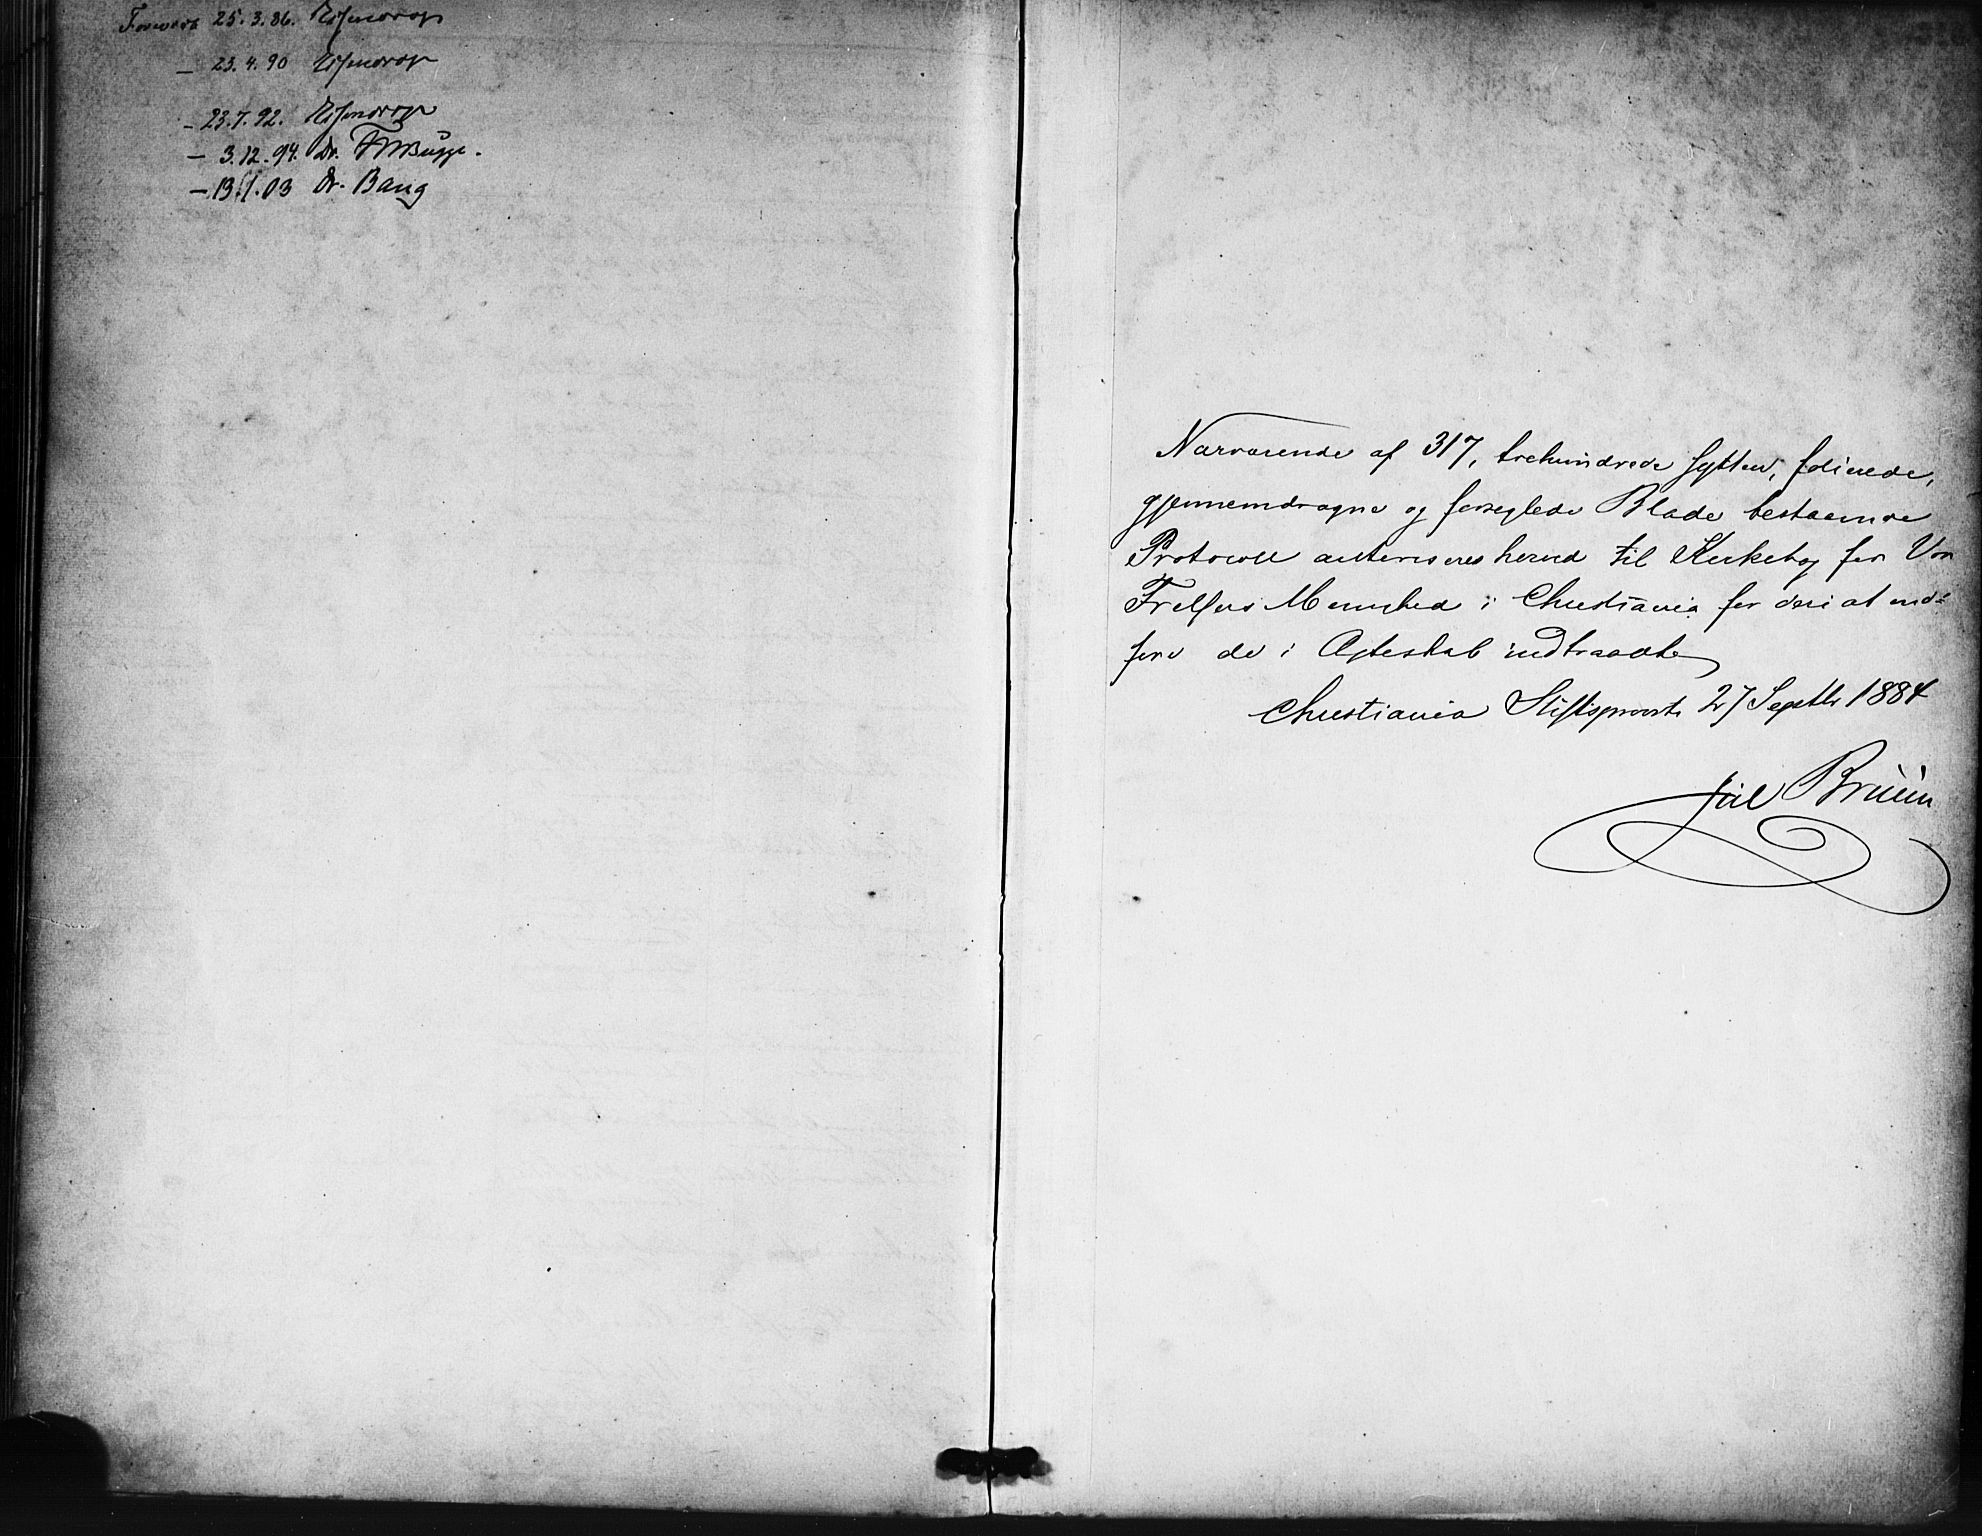 Forevist 25.3.86.
– 23.4.90
– 23.7.92.
– 3.12.94. Dr. FWBugge.
– 13/1.03 Dr. Bang
Nærværende af 317, trehundrede sytten, folierede,
gjennemdragne og forseglede Blade bestaaende
Protocoll autoriseres herved til Kirkebog for Vor
Frelsers Menighed i Christiania for deri at ind=
føre de i Ægteskab indtraadte
Christiania Stiftsprovsti 27 Septbr 1884
Jul Bruun